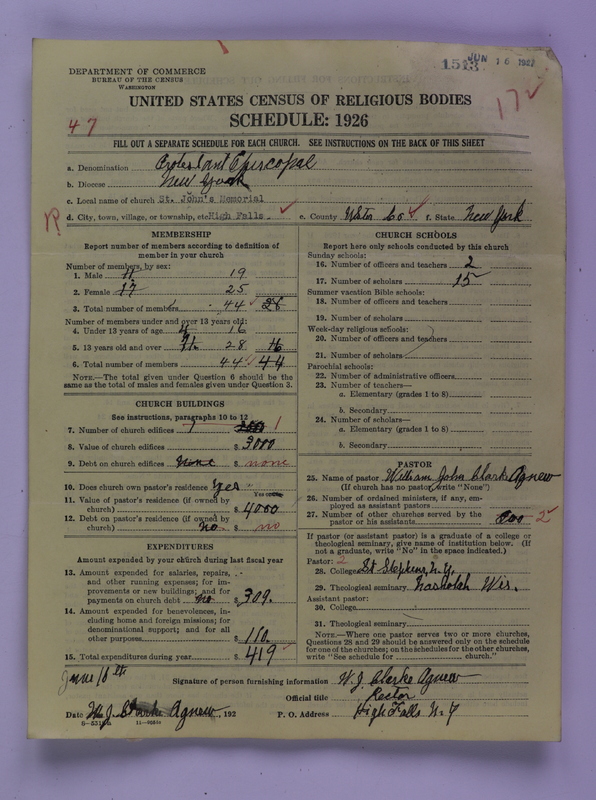 DEPARTMENT OF COMMERCE
BUREAU OF THE CENSUS
WASHINGTON
1513 JUN 16 1927
172
UNITED STATES CENSUS OF RELIGIOUS BODIES
SCHEDULE: 1926
47
FILL OUT A SEPARATE SCHEDULE FOR EACH CHURCH. SEE INSTRUCTIONS ON THE BACK OF THIS SHEET
a. Denomination Protestant Episcopal
b. Diocese New York
c. Local name of church St. John's Memorial
d. City, town, village, or township, etc. High Falls. e. County Ulster Co f. State New York
R
MEMBERSHIP
Report number of members according to definition of member in your church
Number of members, by sex:
1. Male 11 19
2. Female 17 25
3. Total number of members 44 28
Number of members under and over 13 years old:
4. Under 13 years of age 16
5. 13 years old and over 28 16
6. Total number of members 44 44
NOTE.—The total given under Question 6 should be the
same as the total of males and females given under Question 3.
CHURCH BUILDINGS
See instructions, paragraphs 10 to 12
7. Number of church edifices 1 1
8. Value of church edifices $ 3000
9. Debt on church edifices None $ none
10. Does church own pastor's residence? Yes
Yes or no
11. Value of pastor's residence (if owned by
church) $ 4000
12. Debt on pastor's residence (if owned by
church) no $ no
EXPENDITURES
Amount expended by your church during last fiscal year
13. Amount expended for salaries, repairs,
and other running expenses; for im-
provements or new buildings; and for
payments on church debt no $ 309.
14. Amount expended for benevolences, in-
cluding home and foreign missions; for
denominational support; and for all
other purposes $ 110.
15. Total expenditures during year $ 419
CHURCH SCHOOLS
Report here only schools conducted by this church
Sunday schools:
16. Number of officers and teachers 2
17. Number of scholars 15
Summer vacation Bible schools:
18. Number of officers and teachers
19. Number of scholars
Week-day religious schools:
20. Number of officers and teachers
21. Number of scholars
Parochial schools:
22. Number of administrative officers
23. Number of teachers—
a. Elementary (grades 1 to 8)
b. Secondary
24. Number of scholars—
a. Elementary (grades 1 to 8)
b. Secondary
PASTOR
25. Name of pastor William John Clarke Agnew
(If church has no pastor, write "None")
26. Number of ordained ministers, if any, em-
ployed as assistant pastors
27. Number of other churches served by the
pastor or his assistants two 2
If pastor (or assistant pastor) is a graduate of a college or
theological seminary, give name of institution below. (If
not a graduate, write "No" in the space indicated.)
Pastor: 2
28. College St Stephens, N.Y.
29. Theological seminary Nashotah Wis.
Assistant pastor:
30. College
31. Theological seminary
NOTE.—Where one pastor serves two or more churches,
Questions 28 and 29 should be answered only on the schedule
for one of the churches; on the schedules for the other churches,
write "See schedule for church."
June 16th
Signature of person furnishing information W. J. Clarke Agnew
Official title Rector
Date W. J. Clarke Agnew, 192
P. O. Address High Falls N.Y